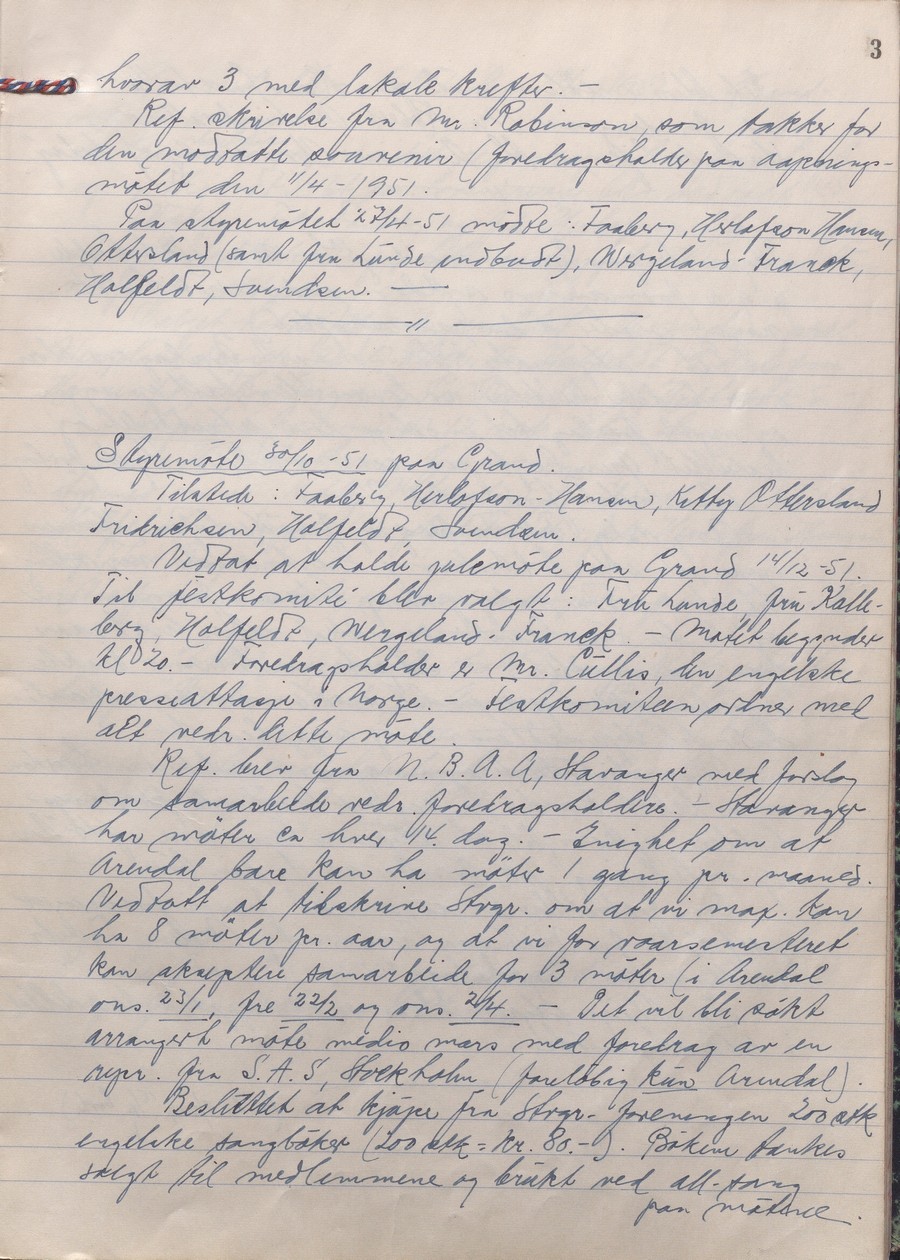 3
hvorav 3 med lokale krefter. —
Ref. skrivelse fra Mr. Robinson, som takker for
den modtatte souvenir (foredragsholder paa aapnings-
mötet den 11/4 - 1951.
Paa styremötet 27/4-51 mödte: Faaberg, Herlofson Hansen,
Ottersland (samt fru Lunde indbudt), Wergeland-Franck,
Holfeldt, Svendsen. —
— " —
Styremöte 30/10-51 paa Grand.
Tilstede: Faaberg, Herlofson-Hansen, Kitty Ottersland
Fridrichsen, Holfeldt, Svendsen.
Vedtat at holde julemöte paa Grand 14/12-51.
Til festkomité blev valgt: Fru Lunde, fru Kalle-
berg, Holfeldt, Wergeland-Franck. — Mötet begynder
kl 20. — Foredragsholder er Mr. Cullis, den engelske
presseattasje i Norge. — Festkomiteen ordner med
alt vedr. dette möte.
Ref. brev fra N.B.A.A, Stavanger med forslag
om samarbeide vedr. foredragsholdere. — Stavanger
har möter ca hver 14. dag. — Enighet om at
Arendal bare kan ha möter 1 gang pr. maaned.
Vedtatt at tilskrive Stvgr. om at vi max. kan
ha 8 möter pr. aar, og at vi for vaarsemesteret
kan akseptere samarbeide for 3 möter (i Arendal
ons. 23/1, fre 22/2 og ons. 2/4. — Det vil bli sökt
arrangert möte medio mars med foredrag av en
repr. fra S.A.S, Stockholm (forelöbig kun Arendal).
Besluttet at kjöpe fra Stvgr.-foreningen 200 stk
engelske sangböker (200 stk = kr. 80.-). Bökene tænkes
solgt til medlemmene og brukt ved all-sang
paa mötene.